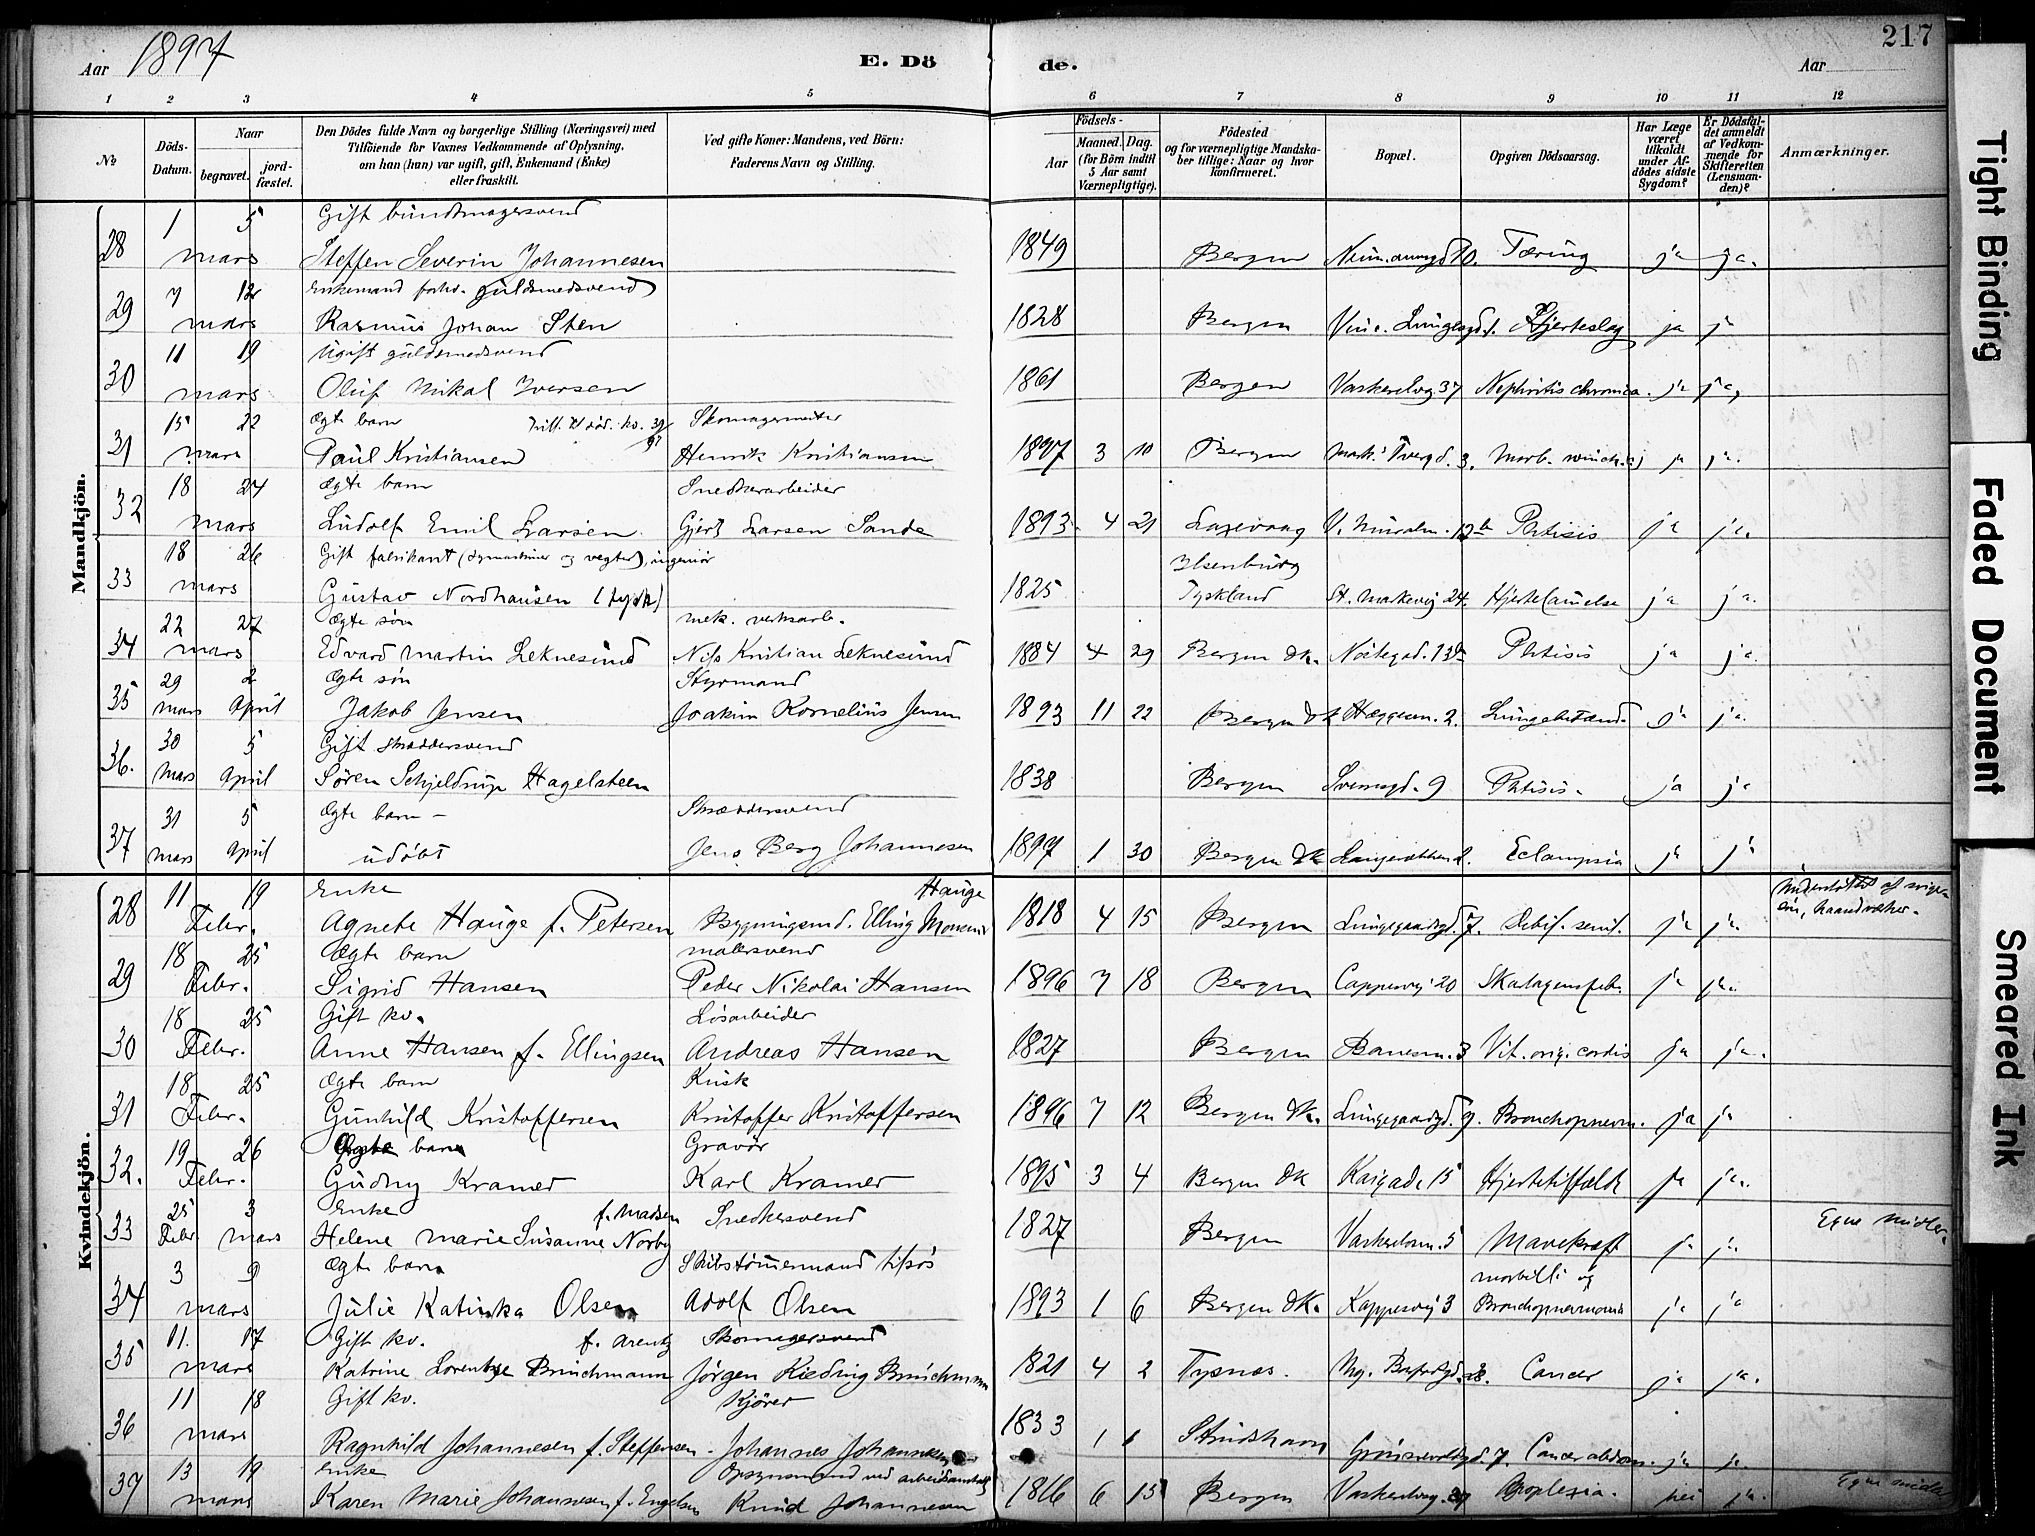 Aar 1897
E. Dö
de.
Aar
217
1 2 3 4 5 6 7 8 9 10 11 12
No
Döds-Datum.
Naar
begravet.
jord-fæstet.
Den Dödes fulde Navn og borgerlige Stilling (Næringsvei) med
Tilföiende for Voxnes Vedkommende af Oplysning,
om han (hun) var ugift, gift, Enkemand (Enke)
eller fraskilt.
Ved gifte Koner: Mandens, ved Börn:
Faderens Navn og Stilling.
Födsels-
Aar
Maaned. Dag.
(for Börn indtil
5 Aar samt
Værnepligtige).
Födested
og for værnepligtige Mandska-
ber tillige: Naar og hvor
konfirmeret.
Bopæl.
Opgiven Dödsaarsag.
Har Læge
været
tilkaldt
under Af-
dödes sidste
Sygdom?
Er Dödsfal-
det anmeldt
af Vedkom-
mende for
Skifteretten
(Lensman-
den)?
Anmærkninger.
Mandkjön.
1 5 Gift bundtmagersvend
28 mars Steffen Severin Johannesen 1849 Bergen Neumannsgd 10. Tæring ja ja.
7 12 Enkemand forhv. guldsmedsvend
29 mars Rasmus Johan Sten 1828 Bergen Hjerteslag ja ja
11 19 Ugift guldsmedsvend
30 mars Oluf Mikal Iversen 1861 Bergen Vaskerelvg. 37 Nephritis chronica. ja ja,
15 22 Ægte barn Skomagermester
31 mars Paul Kristiansen Henrik Kristiansen 1897 3 10 Bergen ja ja.
18 24 Ægte barn Snedkerarbeider
32 mars Ludolf Emil Larsen Gjert Larsen Sande 1893. 4 21 Laxevaag Phtisis ja ja.
18 26 Gift fabrikant (symaskiner og vegter), ingeniør Ilsenburg
33 mars Gustav Nordhausen (tysk) 1825 Tyskland St. Markevej 24. Hjertelamelse ja ja.
22 27 Ægte søn mek. verksarb.
34 mars Edvard Martin Leknesund Nils Kristian Leknesund 1884 4 29 Bergen Dk. Nøstegad. 13 Phtisis ja ja.
29 2 Ægte søn Styrmand
35 mars April Jakob Jensen Joakim Kornelius Jensen 1893 11 22 Bergen Dk Heggesm. 2. Lungebetænd. ja ja.
30 5 Gift skræddersvend
36. Mars April Søren Schjeldrup Hagelsteen 1838 Bergen 9 Phtisis. ja ja
31 5 Ægte barn - Skræddersvend
37 mars April udøbt Jens Berg Johannesen 1897 1 30 Bergen Dk 2. Eclampsia ja ja
Kvindekjön.
11 19 Enke Hauge
28 Febr. Agnete Hauge f. Petersen Bygningssnd. Elling Monsen 1818 4 15 Bergen Lungegaardsgd. 7. Debil. senil. ja ja.
18 25 Ægte barn malersvend
29 Febr. Sigrid Hansen Peder Nikolai Hansen 1896 7 18 Bergen Cappesvej 20 Skarlagensfeb. ja ja.
18 25 Gift ko. Løsarbeider
30 Febr. Anne Hansen f. Ellingsen Andreas Hansen 1827 Bergen 3 Vit. cordis ja ja.
18 25 Ægte barn Kusk
31 Febr. Gunhild Kristoffersen Kristoffer Kristoffersen 1896 7 12 Bergen Dk. Lungegaardsgd. 9. Bronchopnevm. ja ja
19 26 Ægte barn Gravør
32. Febr. Gudny Kramer Karl Kramer 1895 3 4 Bergen Dk Kaigade 15 Hjertetilfælde ja ja.
25 3 Enke f. Madsen Snedkersvend Egne midler.
33 Febr mars Helene Marie Susanne Norby 1827 Bergen 5 Mavekræft ja ja.
3 9 Ægte barn Skibstømmermand tilsøs morbilli og
34 mars Julie Katinka Olsen Adolf Olsen 1893 1 6 Bergen Dk. Kappesvej 3 Bronchopnevmonia ja ja
11. 17 Gift ko. f. Arentz Skomagersvend
35 mars Katrine Lorentze Brunchmann Jørgen Kieding Brunchmann 1821 4 2 Tysnæs. Cancer ja ja.
11 18 Gift ko. Kjører
36 mars Ragnhild Johannesen f. Steffensen. Johannes Johannesen 1833 1 1 7. Cancer abdom. ja ja.
13 19 Enke Opsynsmand ved arbeidsanstalt Egne midler
37 mars Karen Marie Johannesen f. Engelsen Knud Johannesen 1816 6 15 Bergen Vaskerelvg. 37 Apoplexia. nei ja.
Tight Binding
Faded Document
Smeared Ink